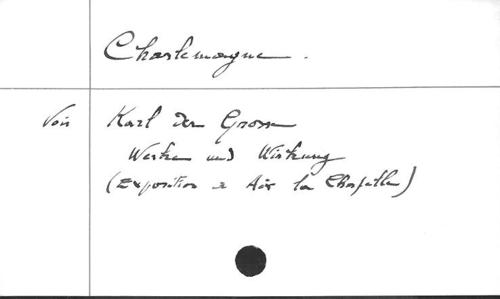 Charlemagne.
Voir Karl der Grosse
Werke und Wirkung
(Exposition à Aix la Chapelle)